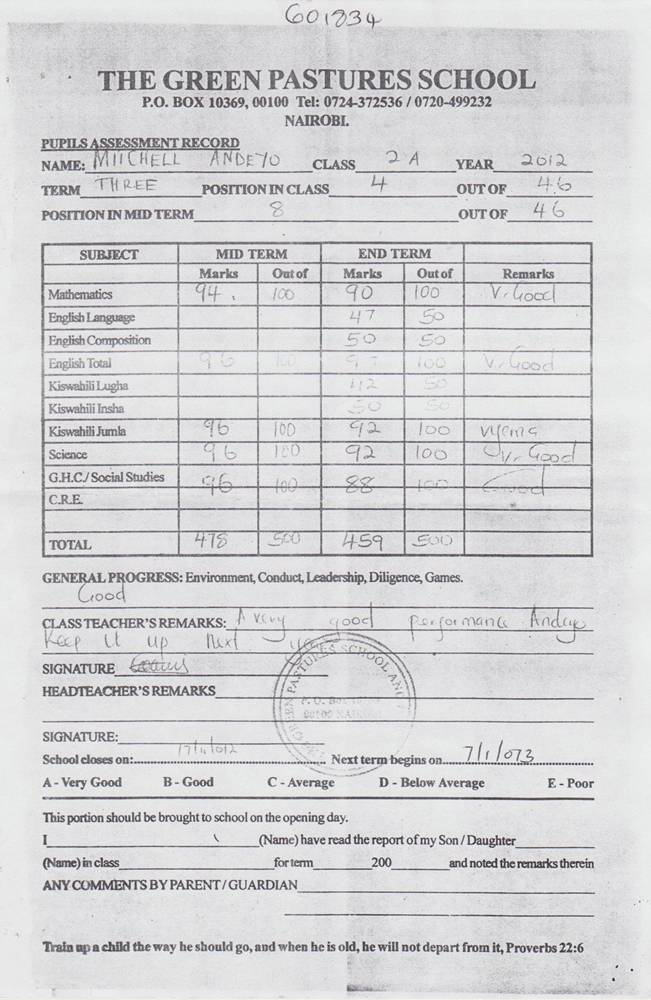 601834
THE GREEN PASTURES SCHOOL
P.O. BOX 10369, 00100 Tel: 0724-372536 / 0720-499232
NAIROBI.
PUPILS ASSESSMENT RECORD
NAME: MIICHELL ANDEYO CLASS 2 A YEAR 2012
TERM THREE POSITION IN CLASS 4 OUT OF 46
POSITION IN MID TERM 8 OUT OF 46
SUBJECT MID TERM END TERM
Marks Out of Marks Out of Remarks
Mathematics 94 100 90 100 V. Good
English Language 47 50
English Composition 50 50
English Total 96 100 97 100 V. Good
Kiswahili Lugha 42 50
Kiswahili Insha 50 50
Kiswahili Jumla 96 100 92 100 vyema
Science 96 100 92 100 V. Good
G.H.C./ Social Studies 96 100 88 100 Good
C.R.E.
TOTAL 478 500 459 500
GENERAL PROGRESS: Environment, Conduct, Leadership, Diligence, Games.
Good
CLASS TEACHER'S REMARKS: A very good performance Andeyo
Keep it up next
SIGNATURE
HEADTEACHER'S REMARKS
GREEN PASTURES SCHOOL
P. O. Box
00100 NAIROBI
SIGNATURE:
School closes on: Next term begins on 7/1/013
A - Very Good B - Good C - Average D - Below Average E - Poor
This portion should be brought to school on the opening day.
I (Name) have read the report of my Son / Daughter
(Name) in class for term 200 and noted the remarks therein
ANY COMMENTS BY PARENT / GUARDIAN
Train up a child the way he should go, and when he is old, he will not depart from it, Proverbs 22:6